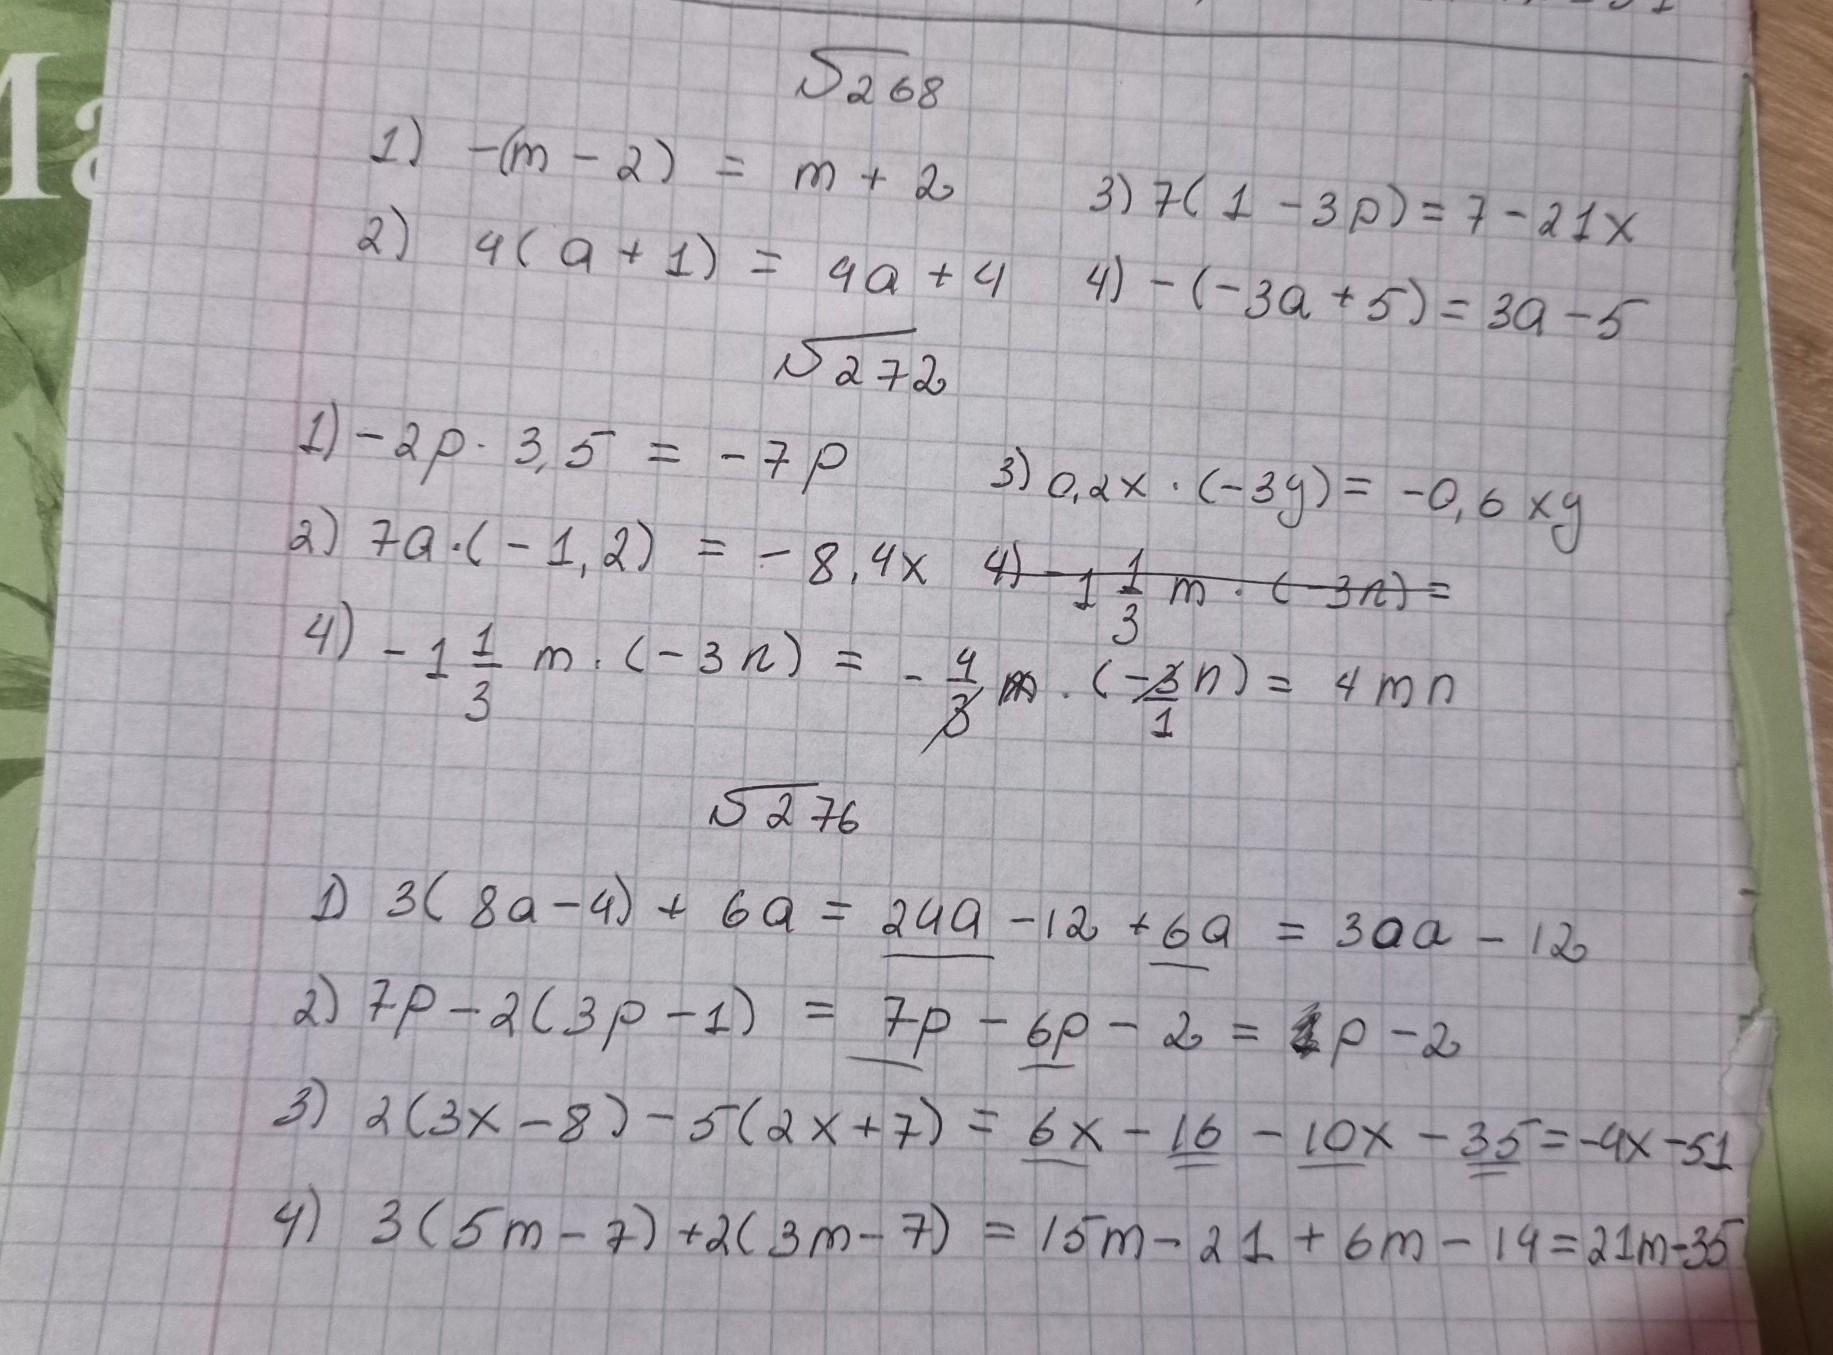 Ma
√268
1) -(m - 2) = m + 2
3) 7(1 - 3p) = 7 - 21x
2) 4(a + 1) = 4a + 4
4) -(-3a + 5) = 3a - 5
√272
1) -2p · 3,5 = -7p
3) 0,2x · (-3y) = -0,6xy
2) 7a · (-1,2) = -8,4x
4) -1 1/3 m · (-3n) =
4) -1 1/3 m · (-3n) = -4/3 m · (-3/1 n) = 4mn
√276
1) 3(8a - 4) + 6a = 24a - 12 + 6a = 30a - 12
2) 7p - 2(3p - 1) = 7p - 6p - 2 = 1p - 2
3) 2(3x - 8) - 5(2x + 7) = 6x - 16 - 10x - 35 = -4x - 51
4) 3(5m - 7) + 2(3m - 7) = 15m - 21 + 6m - 14 = 21m - 35